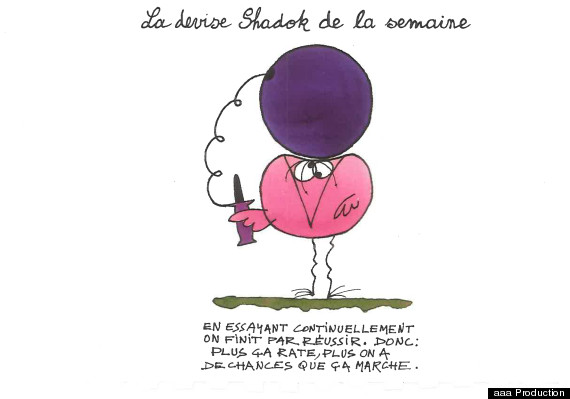 La devise Shadok de la semaine
EN ESSAYANT CONTINUELLEMENT
ON FINIT PAR RÉUSSIR. DONC:
PLUS ÇA RATE, PLUS ON A
DE CHANCES QUE ÇA MARCHE.
aaa Production